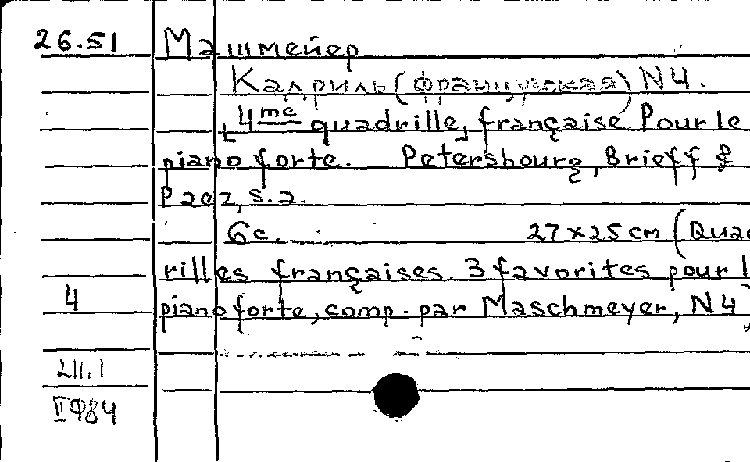 26.51 Машмейер
Кадриль (французская) N4.
[4me quadrille] française Pour le
piano forte. Petersbourg, Brieff &
Paez, s.a.
6c. 27x25 см (Quad
rilles françaises 3 favorites pour l
4 pianoforte, comp. par Maschmeyer, N4)
LII.1